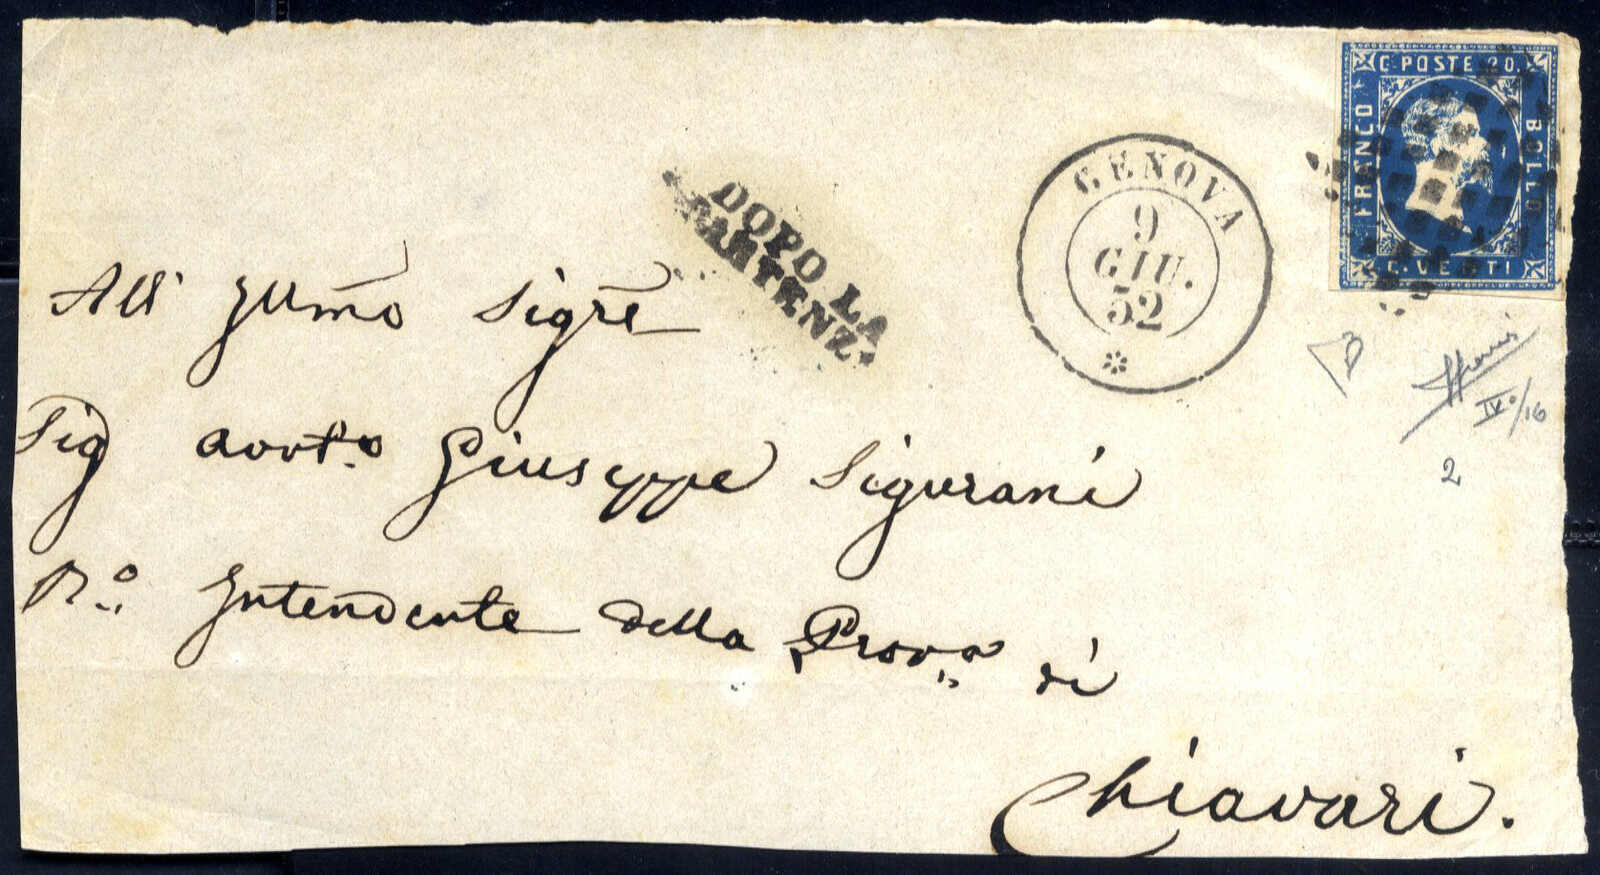 C. POSTE 20.
FRANCO
BOLLO
C. VENTI
GENOVA
9
GIU.
52
*
DOPO LA
PARTENZ.
All' Illmo Sigre
Sig avvto Giuseppe Sigurani
Ro Intendente della Prova di
Chiavari.
B
IVo/16
2